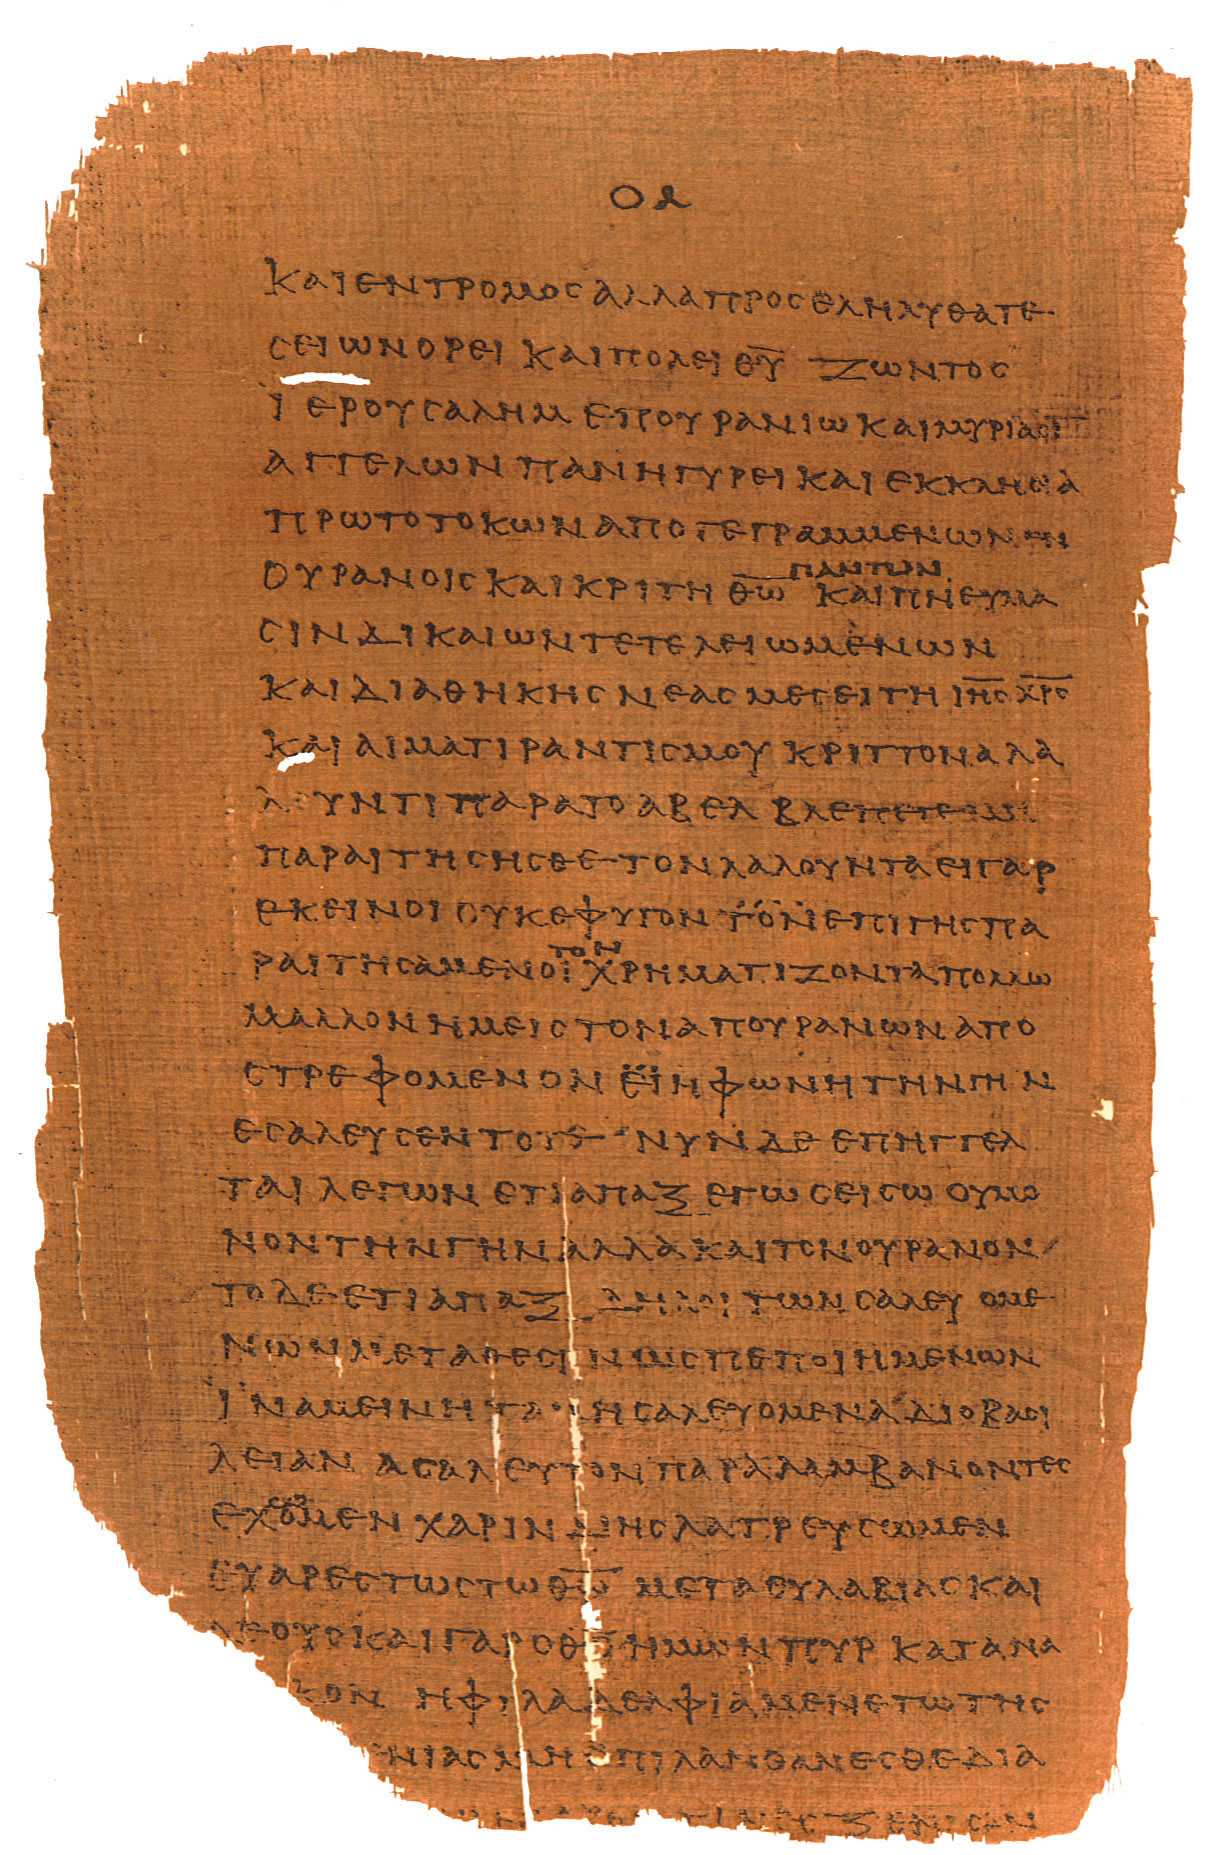 ΟΔ
ΚΑΙΕΝΤΡΟΜΟΣ ΑΛΛΑΠΡΟΣΕΛΗΛΥΘΑΤΕ
ΣΕΙΩΝΟΡΕΙ ΚΑΙΠΟΛΕΙ Θ̅Υ̅ ΖΩΝΤΟΣ
ΙΕΡΟΥΣΑΛΗΜ ΕΠΟΥΡΑΝΙΩ ΚΑΙΜΥΡΙΑΣΙ
ΑΓΓΕΛΩΝ ΠΑΝΗΓΥΡΕΙ ΚΑΙ ΕΚΚΛΗΣΙΑ
ΠΡΩΤΟΤΟΚΩΝ ΑΠΟΓΕΓΡΑΜΜΕΝΩΝ ΕΝ
ΠΑΝΤΩΝ
ΟΥΡΑΝΟΙΣ ΚΑΙ ΚΡΙΤΗ Θ̅Ω̅ ΚΑΙΠΝΕΥΜΑ
ΣΙΝ ΔΙΚΑΙΩΝ ΤΕΤΕΛΕΙΩΜΕΝΩΝ
ΚΑΙ ΔΙΑΘΗΚΗΣ ΝΕΑΣ ΜΕΣΕΙΤΗ Ι̅Η̅Σ̅ Χ̅Ρ̅Σ̅
ΚΑΙ ΑΙΜΑΤΙ ΡΑΝΤΙΣΜΟΥ ΚΡΙΤΤΟΝΑ ΛΑ
ΛΟΥΝΤΙ ΠΑΡΑ ΤΟ ΑΒΕΛ ΒΛΕΠΕΤΕ ΜΗ
ΠΑΡΑΙΤΗΣΗΣΘΕ ΤΟΝ ΛΑΛΟΥΝΤΑ ΕΙΓΑΡ
ΕΚΕΙΝΟΙ ΟΥΚΕΦΥΓΟΝ ΤΟΝ ΕΠΙΓΗΣ ΠΑ
ΤΟΝ
ΡΑΙΤΗΣΑΜΕΝΟΙ ΧΡΗΜΑΤΙΖΟΝΤΑ ΠΟΛΛΩ
ΜΑΛΛΟΝ ΗΜΕΙΣ ΤΟΝ ΑΠΟΥΡΑΝΩΝ ΑΠΟ
ΣΤΡΕΦΟΜΕΝΟΝ ΕΙ Η ΦΩΝΗ ΤΗΝ ΓΗΝ
ΕΣΑΛΕΥΣΕΝ ΤΟΤΕ ΝΥΝ ΔΕ ΕΠΗΓΓΕΛ
ΤΑΙ ΛΕΓΩΝ ΕΤΙ ΑΠΑΞ ΕΓΩ ΣΕΙΣΩ ΟΥΜΟ
ΝΟΝ ΤΗΝ ΓΗΝ ΑΛΛΑ ΚΑΙ ΤΟΝ ΟΥΡΑΝΟΝ
ΤΟ ΔΕ ΕΤΙ ΑΠΑΞ ΔΗΛΟΙ ΤΩΝ ΣΑΛΕΥΟΜΕ
ΝΩΝ ΜΕΤΑΘΕΣΙΝ ΩΣ ΠΕΠΟΙΗΜΕΝΩΝ
ΙΝΑ ΜΕΙΝΗ ΤΑ ΜΗ ΣΑΛΕΥΟΜΕΝΑ ΔΙΟ ΒΑΣΙ
ΛΕΙΑΝ ΑΣΑΛΕΥΤΟΝ ΠΑΡΑΛΑΜΒΑΝΟΝΤΕΣ
ΕΧΟΜΕΝ ΧΑΡΙΝ ΔΙ ΗΣ ΛΑΤΡΕΥΣΩΜΕΝ
ΕΥΑΡΕΣΤΩΣ ΤΩ Θ̅Ω̅ ΜΕΤΑ ΕΥΛΑΒΙΑΣ ΚΑΙ
ΔΕΟΥΣ ΚΑΙ ΓΑΡ Ο Θ̅Σ̅ ΗΜΩΝ ΠΥΡ ΚΑΤΑΝΑ
ΚΟΝ Η ΦΙΛΑΔΕΛΦΙΑ ΜΕΝΕΤΩ ΤΗΣ
ΕΝΙΑΣ ΜΗ ΕΠΙΛΑΝΘΑΝΕΣΘΕ ΔΙΑ
ΤΙΝΕΣ ΞΕΝΙΣΑΝ